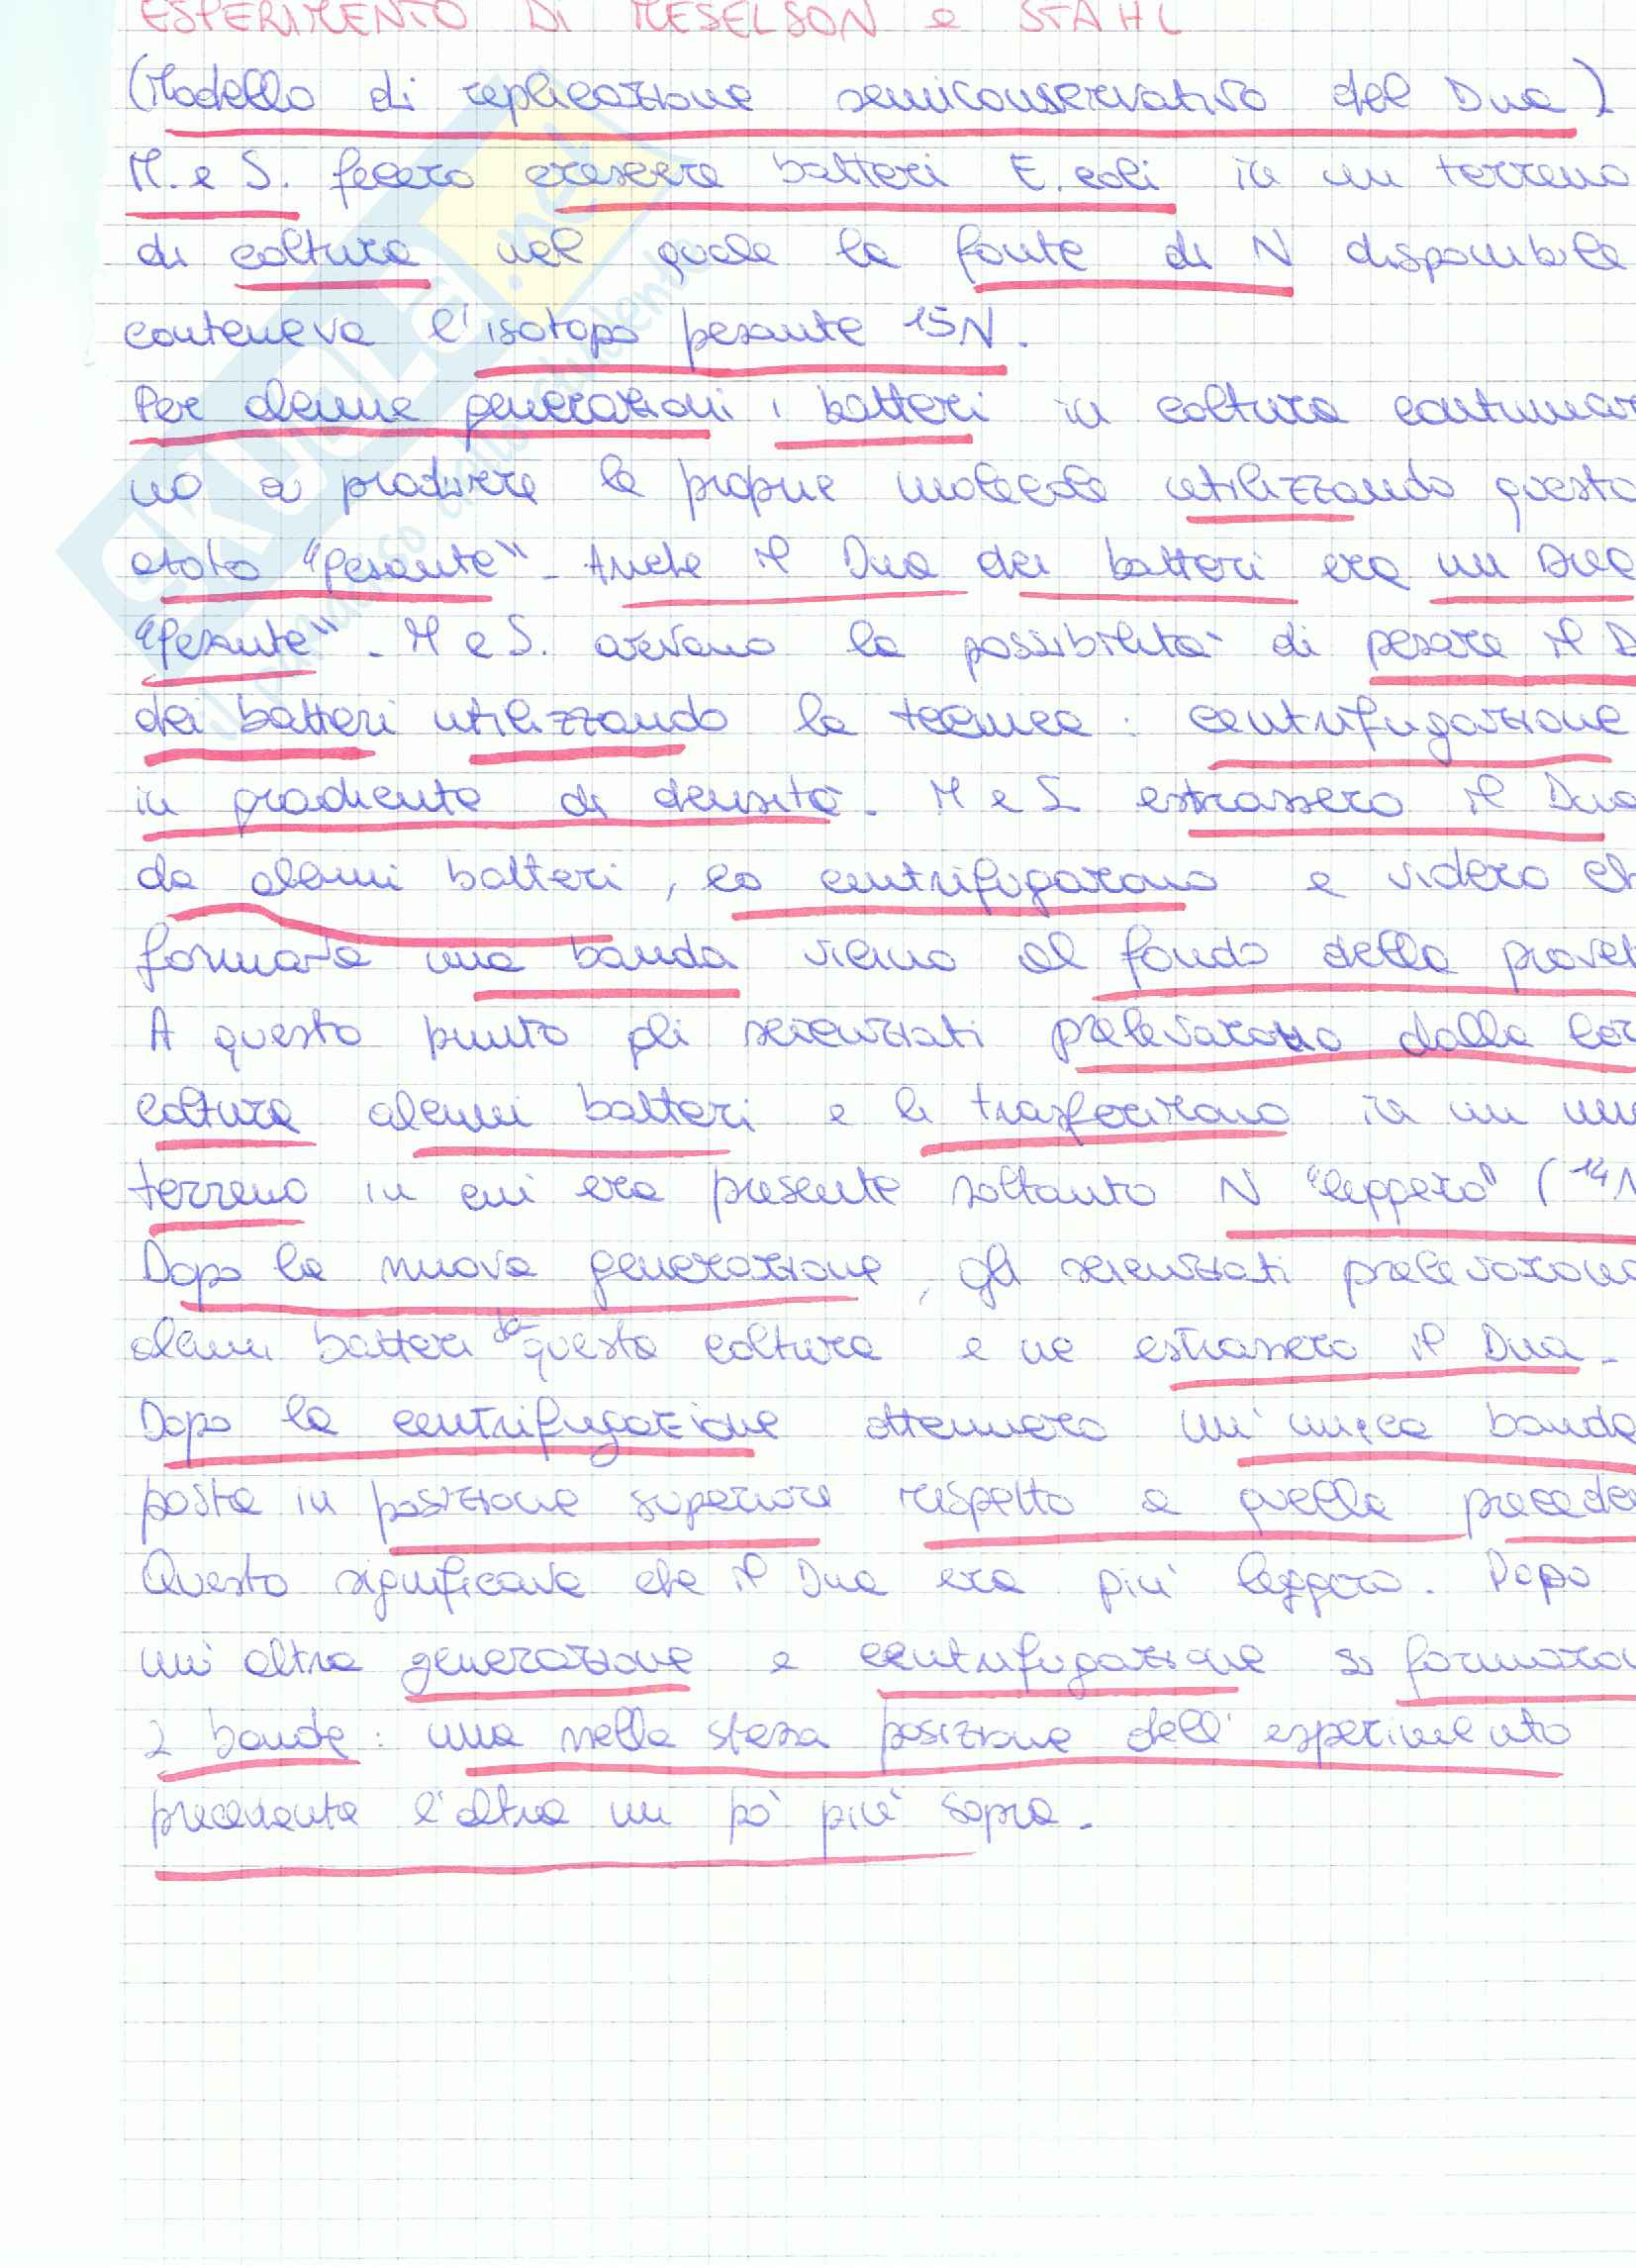 ESPERIMENTO DI MESELSON e STAHL
(Modello di replicazione semiconservativo del Dna)
M. e S. fecero crescere batteri E. coli in un terreno
di coltura nel quale la fonte di N disponibile
conteneva l'isotopo pesante 15N.
Per alcune generazioni i batteri in coltura continuar
no a produrre le proprie molecole utilizzando questo
azoto "pesante". Anche il Dna dei batteri era un Dna
"pesante". M e S. avevano la possibilità di pesare il D
dei batteri utilizzando la tecnica: centrifugazione
in gradiente di densità. M e S estrassero il Dna
da alcuni batteri, lo centrifugarono e videro ch
formava una banda vicino al fondo della provet
A questo punto gli scienziati prelevarono dalla lor
coltura alcuni batteri e li trasferirono in un nuo
terreno in cui era presente soltanto N "leggero" (14N
Dopo la nuova generazione, gli scienziati prelevarono
alcuni batteri da questa coltura e ne estrassero il Dna.
Dopo la centrifugazione ottennero un'unica banda
posta in posizione superiore rispetto a quella preceden
Questo significava che il Dna era più leggero. Dopo
un'altra generazione e centrifugazione si formaro
2 bande: una nella stessa posizione dell'esperimento
precedente l'altra un pò più sopra.
SKUOLA.net
il paradiso dello studente